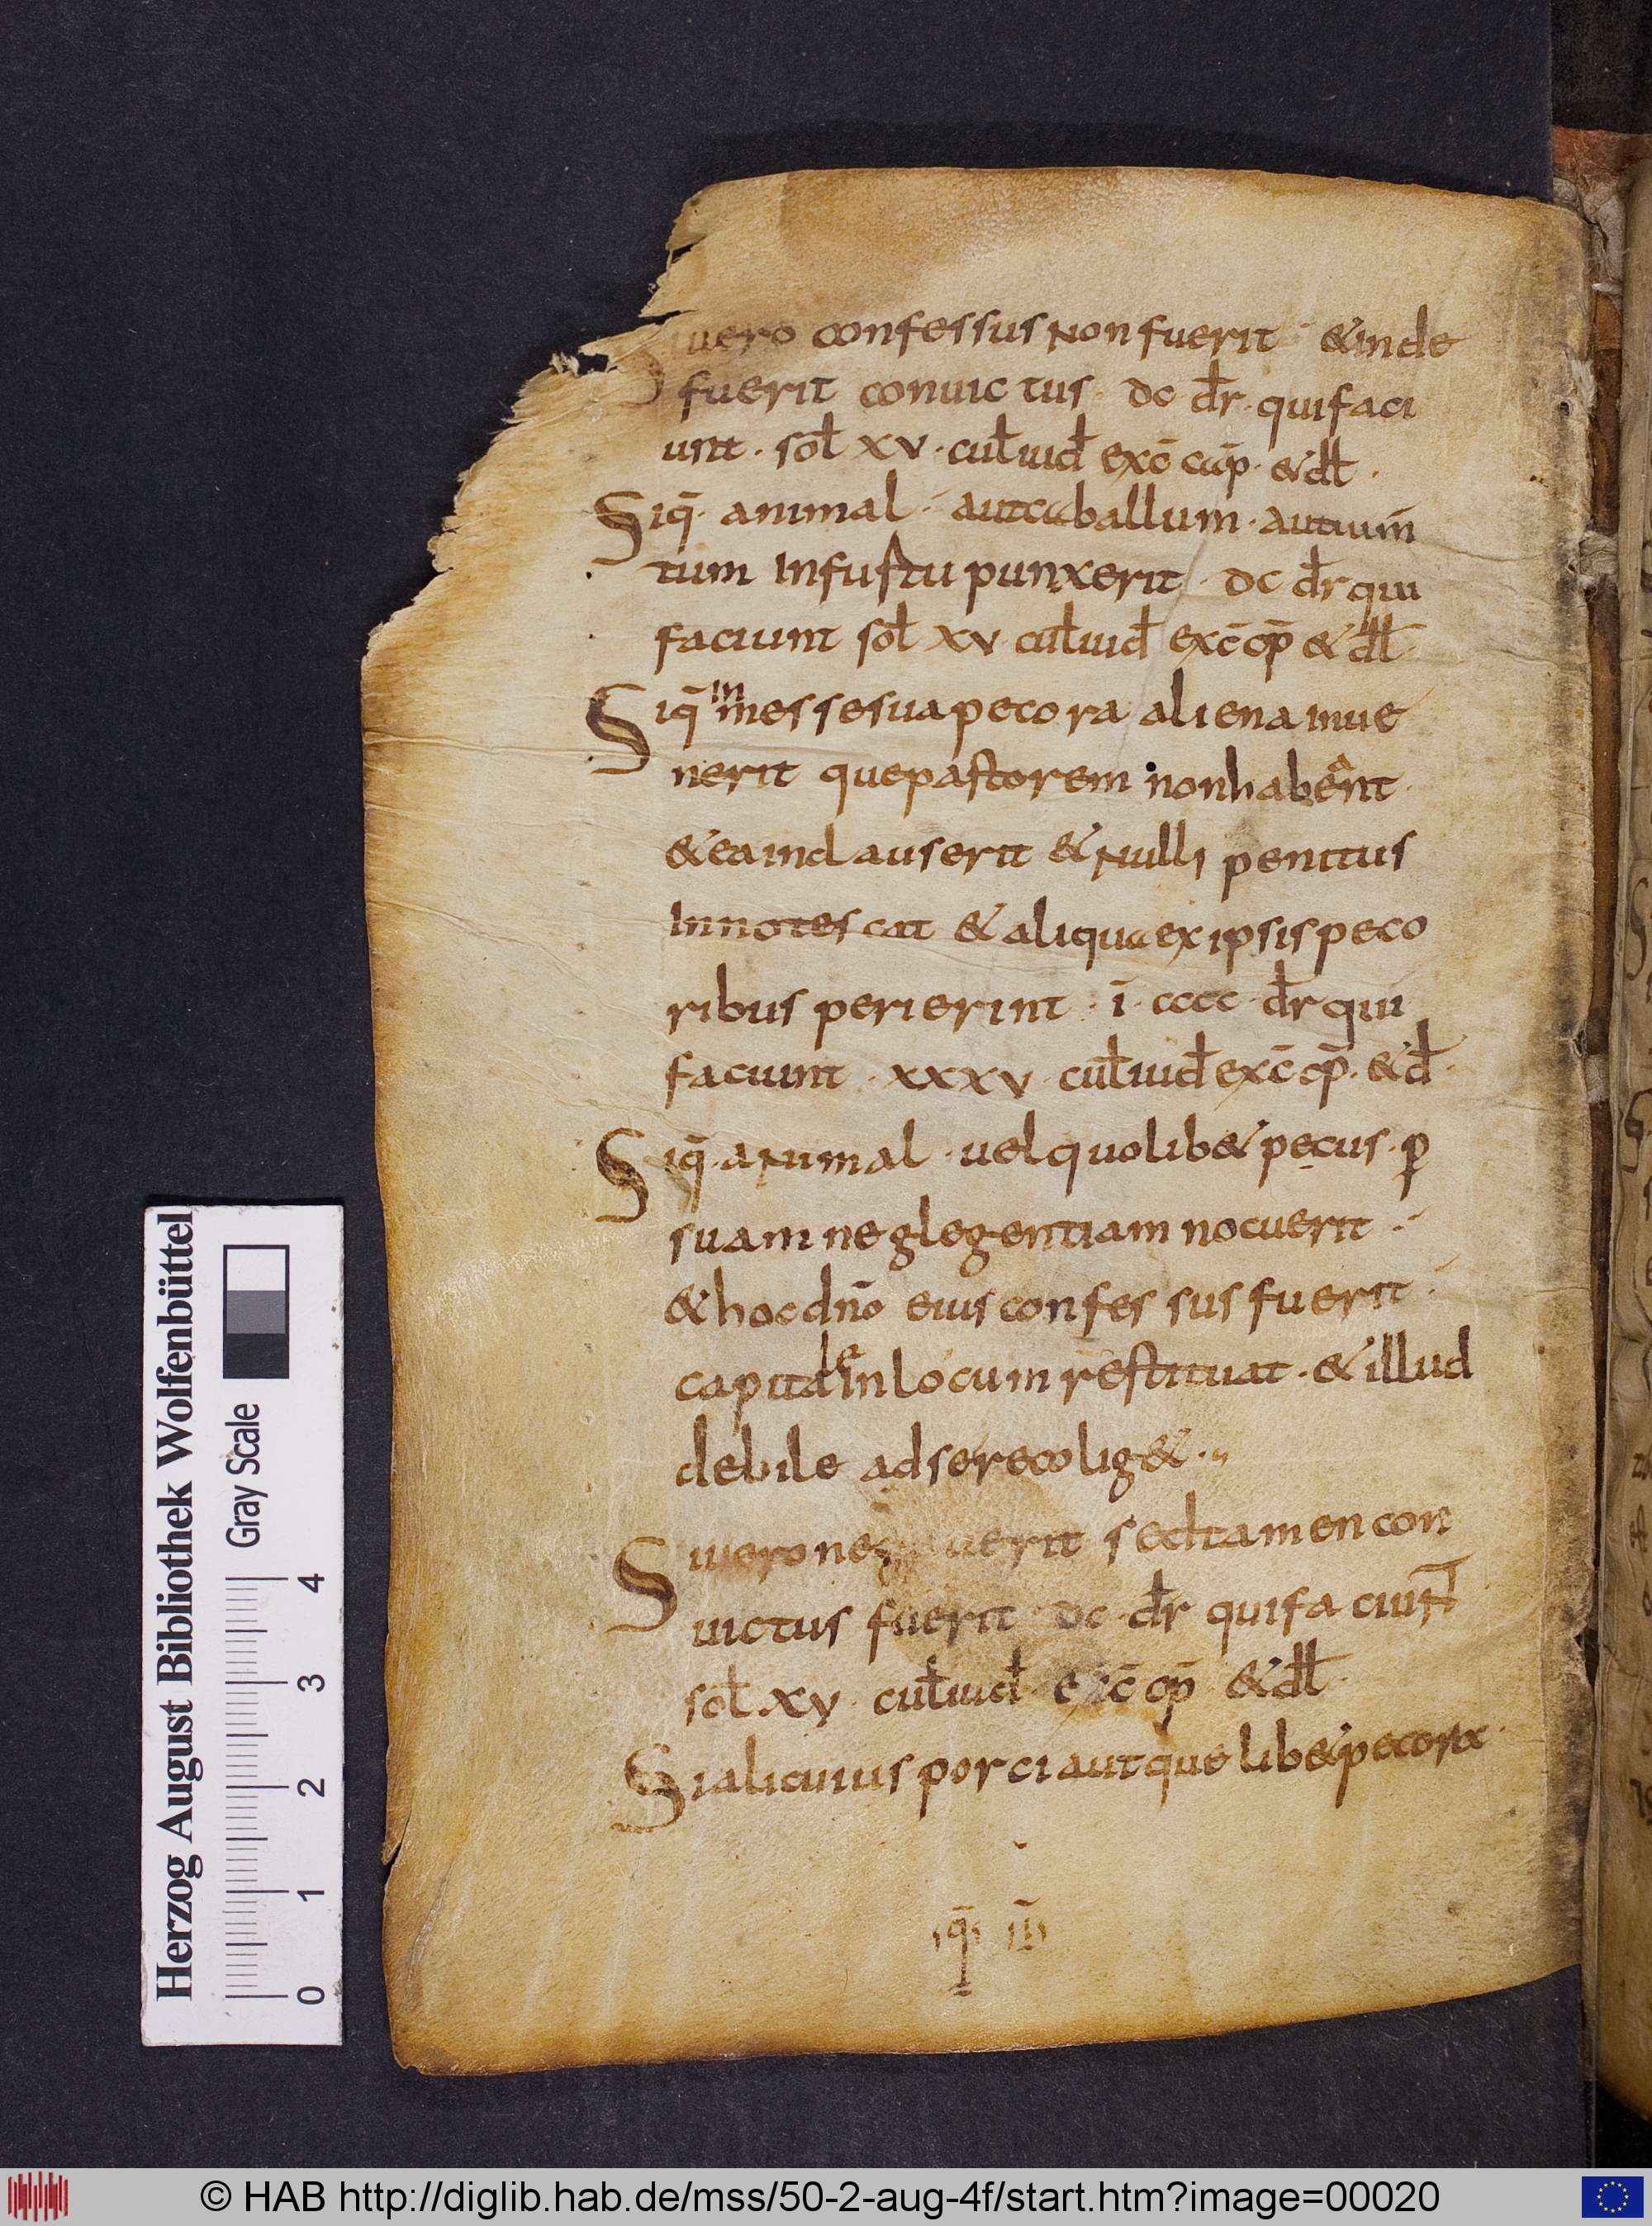 Si uero confessus non fuerit & inde
fuerit conuictus · dc dr̄ · qui faci
unt · sol̄ xv · cul̄ iud̄ exc̄ cap̄ · & dl̄ ·
Si q̄ · animal · aut caballum · aut ium̄
tum in fustu punxerit · dc dr̄ qui
faciunt sol̄ xv cul̄ iud̄ exc̄ cp̄ & dl̄
Si q̄ in messe sua pecora aliena inue
nerit que pastorem non habent
& ea inclauserit & nulli penitus
innotescat & aliqua ex ipsis peco
ribus perierint · ī · cccc · dr̄ qui
faciunt · xxxv · cul̄ iud̄ exc̄ cp̄ · & d̄ ·
Si q̄ · animal · uel quolib& pecus · ꝑ
suam neglegentiam nocuerit ·
& hoc dn̄o eius confessus fuerit ·
capitale in locum restituat · & illud
debile ad se recollig& ·
Si uero neg uerit sed tamen con
uictus fuerit dc dr̄ qui faciun̄t
sol̄ xv · cul̄ iud̄ · exc̄ cp̄ & dl̄ ·
Si alicuius porci aut que lib& pecora ·
q̄
Herzog August Bibliothek Wolfenbüttel
Gray Scale
0 1 2 3 4
© HAB http://diglib.hab.de/mss/50-2-aug-4f/start.htm?image=00020